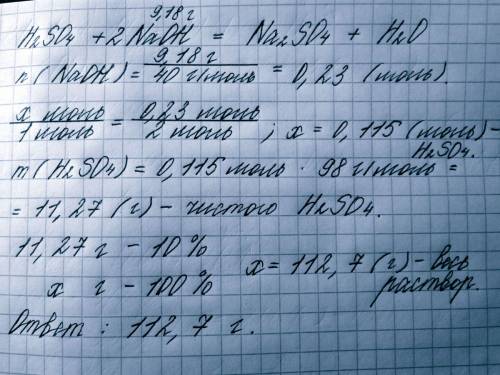 9,18 г
H2SO4 + 2 NaOH = Na2SO4 + H2O
n (NaOH) = 9,18 г / 40 г/моль = 0,23 (моль).
x моль / 1 моль = 0,23 моль / 2 моль ; x = 0,115 (моль) –
H2SO4.
m (H2SO4) = 0,115 моль · 98 г/моль =
= 11,27 (г) – чистого H2SO4.
11,27 г – 10 %
x г – 100 %
x = 112,7 (г) – весь
раствор.
Ответ : 112,7 г.